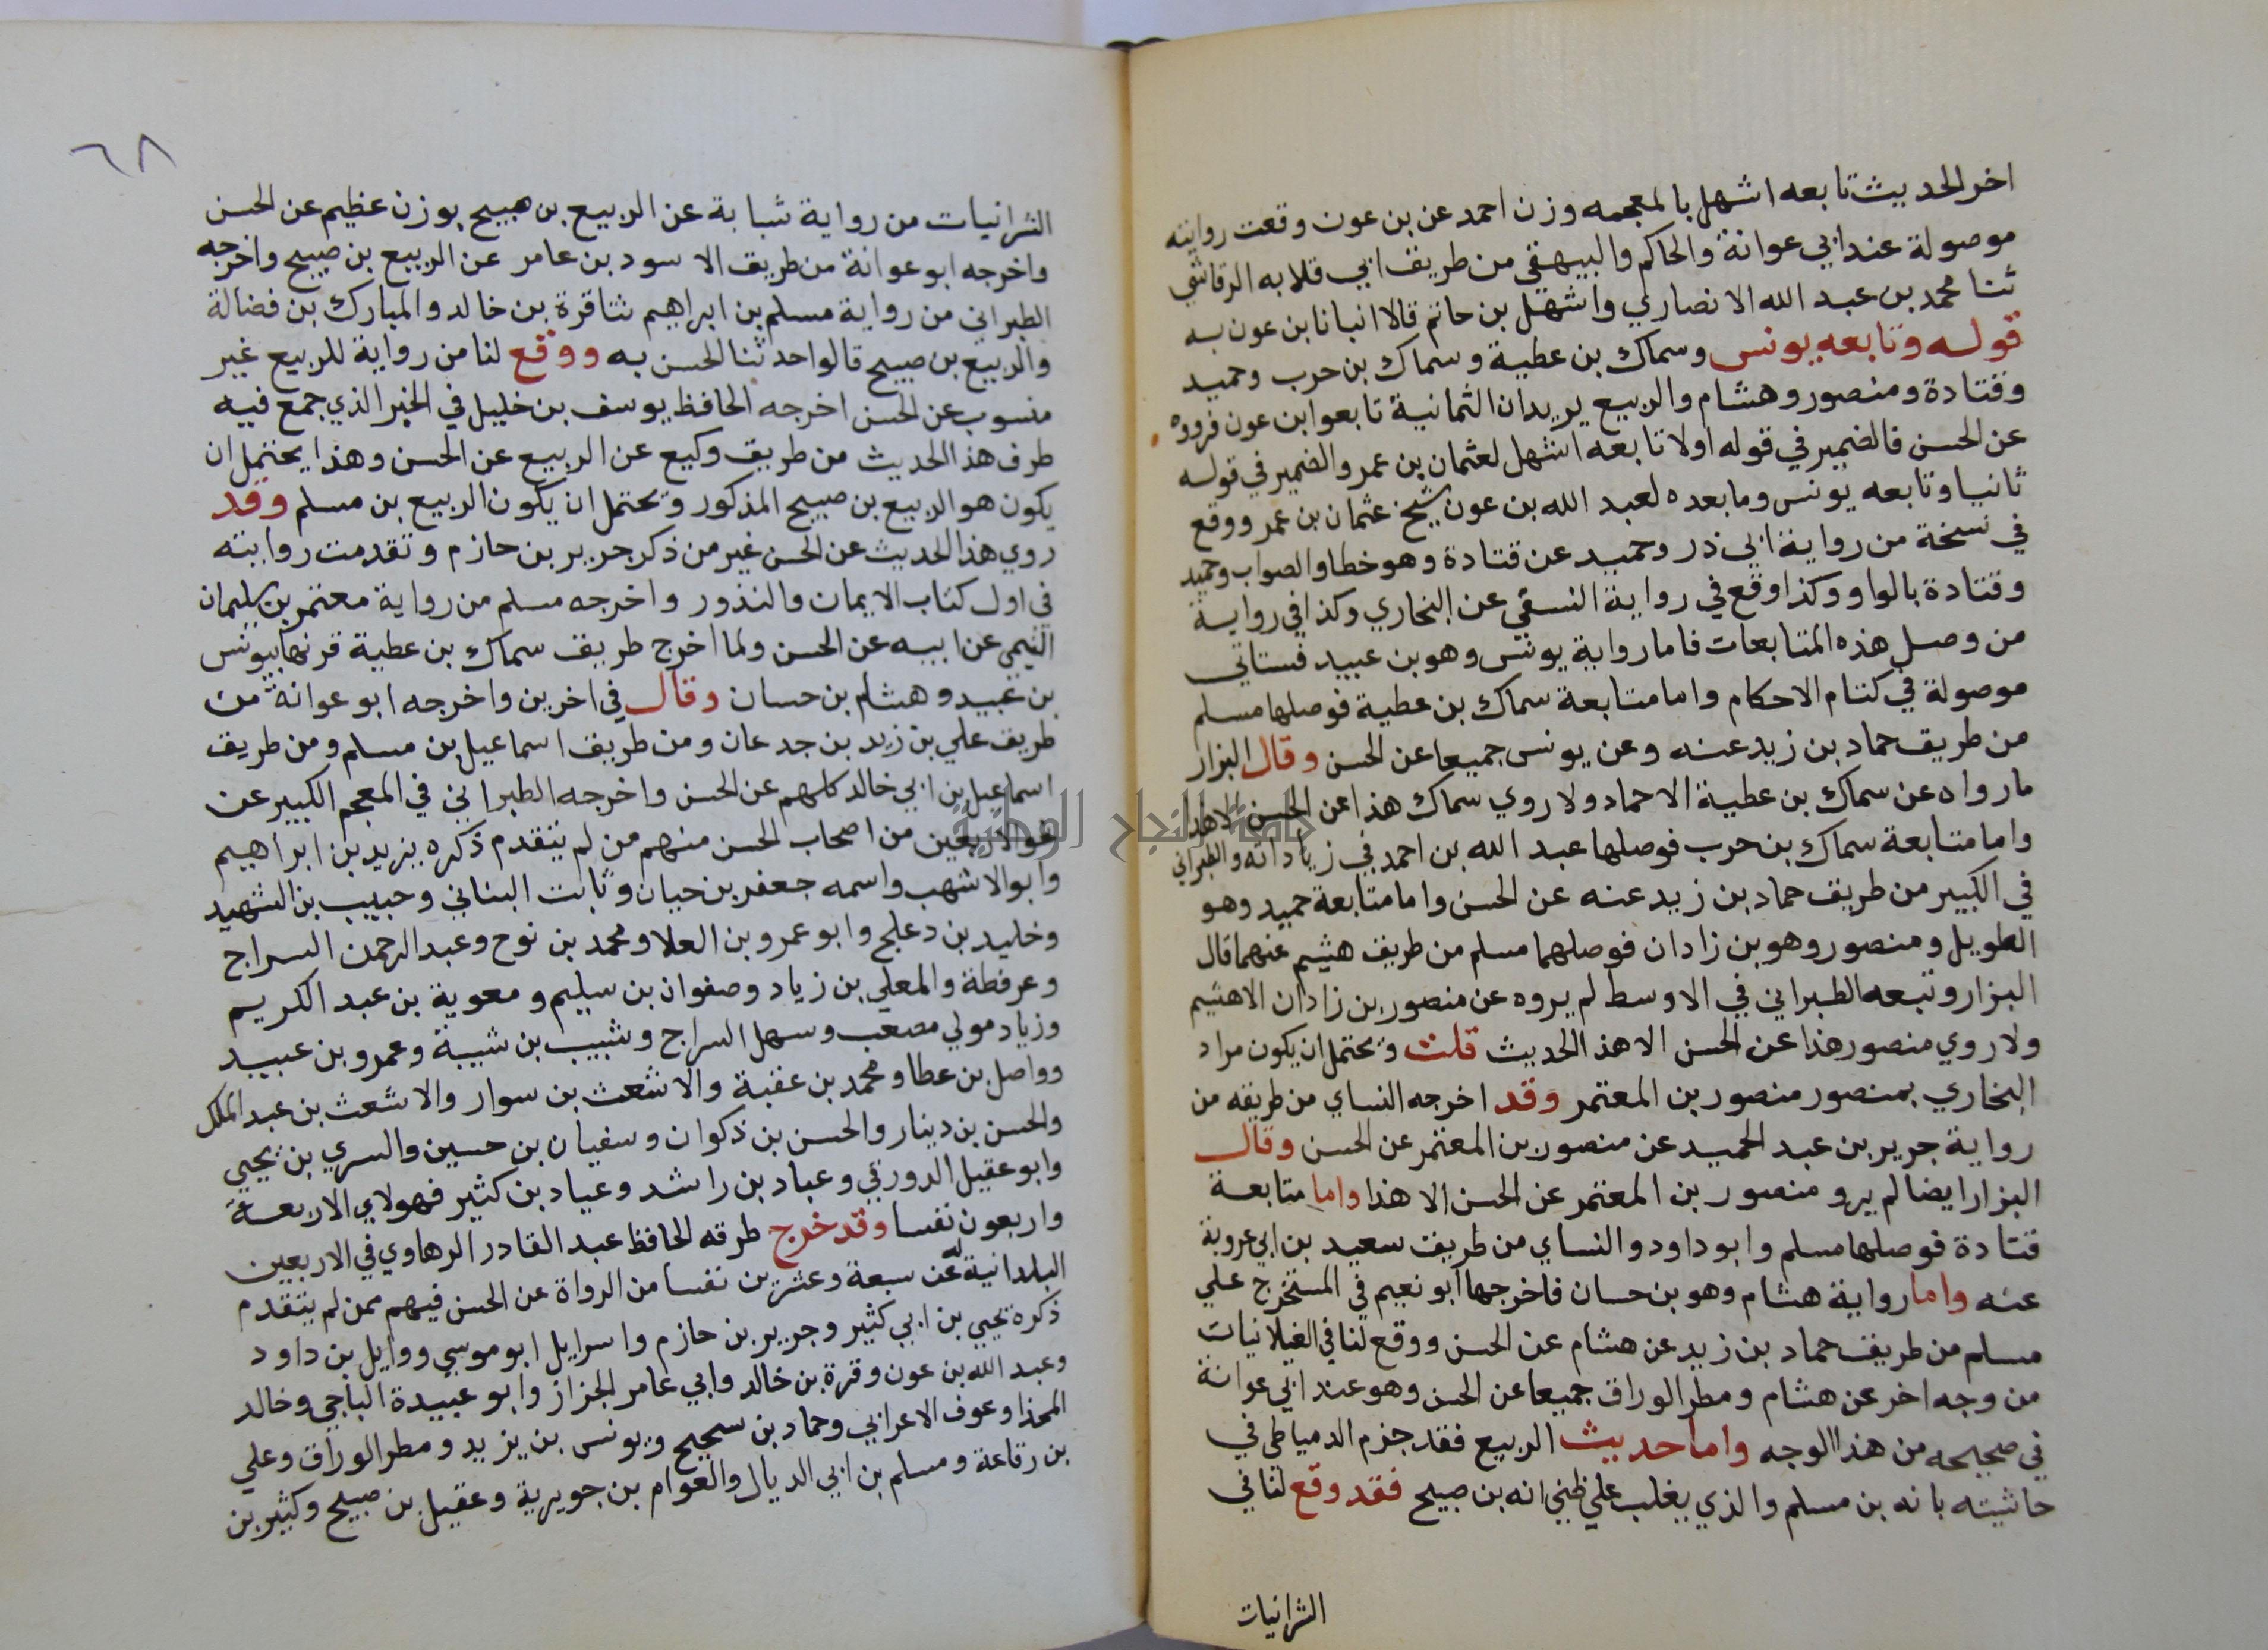 اخر الحديث تابعه اشهل بالمعجمه وزن احمد عن بن عون وقعت روايته
موصولة عند ابي عوانة والحاكم والبيهقي من طريق ابي قلابه الرقاشي
ثنا محمد بن عبد الله الانصاري واشهل بن حاتم قالا انبانا بن عون به
قوله وتابعه يونس وسماك بن عطية وسماك بن حرب وحميد
وقتادة ومنصور وهشام والربيع يريد ان الثمانية تابعوا ابن عون فرووه
عن الحسن فالضمير في قوله اولا تابعه اشهل لعثمان بن عمر والضمير في قوله
ثانيا وتابعه يونس وما بعده لعبد الله بن عون شيخ عثمان بن عمر ووقع
في نسخة من رواية ابي ذر وحميد عن قتادة وهو خطا والصواب وحميد
وقتادة بالواو وكذا وقع في رواية النسفي عن البخاري وكذا في رواية
من وصل هذه المتابعات فاما رواية يونس وهو بن عبيد فستاتي
موصولة في كتام الاحكام واما متابعة سماك بن عطية فوصلها مسلم
من طريق حماد بن زيد عنه وعن يونس جميعا عن الحسن وقال البزار
ما رواه عن سماك بن عطية الا حماد ولا روي سماك هذا عن الحسن الا هذا
واما متابعة سماك بن حرب فوصلها عبد الله بن احمد في زياداته والطبراني
في الكبير من طريق حماد بن زيد عنه عن الحسن واما متابعة حميد وهو
الطويل ومنصور وهو بن زادان فوصلهما مسلم من طريق هشيم عنهما قال
البزار وتبعه الطبراني في الاوسط لم يروه عن منصور بن زادان الا هشيم
ولا روي منصور هذا عن الحسن الا هذ الحديث قلت ويحتمل ان يكون مراد
البخاري بمنصور منصور بن المعتمر وقد اخرجه النساي من طريقه من
رواية جرير بن عبد الحميد عن منصور بن المعتمر عن الحسن وقال
البزار ايضا لم يرو منصور بن المعتمر عن الحسن الا هذا واما متابعة
قتادة فوصلها مسلم وابو داود والنساي من طريق سعيد بن ابي عروبة
عنه واما رواية هشام وهو بن حسان فاخرجها ابو نعيم في المستخرج علي
مسلم من طريق حماد بن زيد عن هشام عن الحسن ووقع لنا في الغيلانيات
من وجه اخر عن هشام ومطر الوراق جميعا عن الحسن وهو عند ابي عوانة
في صحيحه من هذا الوجه واما حديث الربيع فقد جزم الدمياطي في
حاشيته بانه بن مسلم والذي يغلب علي ظني انه بن صبيح فقد وقع لنا في
الشرانيات
٦٨
الشرانيات من رواية شبابة عن الربيع بن صبيح بوزن عظيم عن الحسن
واخرجه ابو عوانة من طريق الاسود بن عامر عن الربيع بن صبيح واخرجه
الطبراني من رواية مسلم بن ابراهيم ثنا قرة بن خالد والمبارك بن فضالة
والربيع بن صبيح قالوا حدثنا الحسن به ووقع لنا من رواية للربيع غير
منسوب عن الحسن اخرجه الحافظ يوسف بن خليل في الخبر الذي جمع فيه
طرف هذ الحديث من طريق وكيع عن الربيع عن الحسن وهذا يحتمل ان
يكون هو الربيع بن صبيح المذكور ويحتمل ان يكون الربيع بن مسلم وقد
روي هذ الحديث عن الحسن غير من ذكر جرير بن حازم وتقدمت روايته
في اول كتاب الايمان والنذور واخرجه مسلم من رواية معتمر بن سليمان
التيمي عن ابيه عن الحسن ولما اخرج طريق سماك بن عطية قرنها بيونس
بن عبيد وهشام بن حسان وقال في اخرين واخرجه ابو عوانة من
طريق علي بن زيد بن جدعان ومن طريق اسماعيل بن مسلم ومن طريق
اسماعيل بن ابي خالد كلهم عن الحسن واخرجه الطبراني في المعجم الكبير عن
نحو الاربعين من اصحاب الحسن منهم من لم يتقدم ذكره يزيد بن ابراهيم
وابو الاشهب واسمه جعفر بن حيان وثابت البناني وحبيب بن الشهيد
وخليد بن دعلج وابو عمرو بن العلا ومحمد بن نوح وعبد الرحمن السراج
وعرفطة والمعلي بن زياد وصفوان بن سليم ومعوية بن عبد الكريم
وزياد مولي مصعب وسهل السراج وشبيب بن شيبة وعمرو بن عبيد
وواصل بن عطا ومحمد بن عقبة والاشعث بن سوار والاشعث بن عبد الملك
والحسن بن دينار والحسن بن ذكوان وسفيان بن حسين والسري بن يحيي
وابو عقيل الدورقي وعباد بن راشد وعباد بن كثير فهولاي الاربعة
واربعون نفسا وقد خرج طرقه الحافظ عبد القادر الرهاوي في الاربعين
البلدانية له عن سبعة وعشرين نفسا من الرواة عن الحسن فيهم ممن لم يتقدم
ذكره يحيي بن ابي كثير وجرير بن حازم واسرايل ابو موسي ووايل بن داود
وعبد الله بن عون وقرة بن خالد وابي عامر الجزاز وابو عبيدة الباجي وخالد
المحذا وعوف الاعرابي وحماد بن سجيح ويونس بن يزيد ومطر الوراق وعلي
بن رقاعة ومسلم بن ابي الديال والعوام بن جويرية وعقيل بن صبيح وكثير بن
جامعة النجاح الوطنية